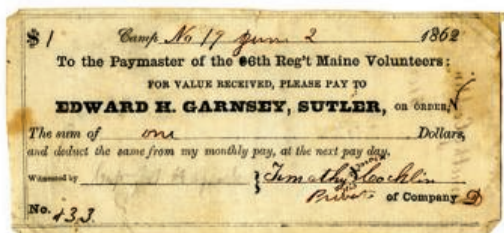 $1 Camp No 19 June 2 1862
To the Paymaster of the 6th Reg't Maine Volunteers:
FOR VALUE RECEIVED, PLEASE PAY TO
EDWARD H. GARNSEY, SUTLER, OR ORDER,
The sum of one Dollars,
and deduct the same from my monthly pay, at the next pay day.
Witnessed by Timothy Cochlin
Private of Company D
No. 433